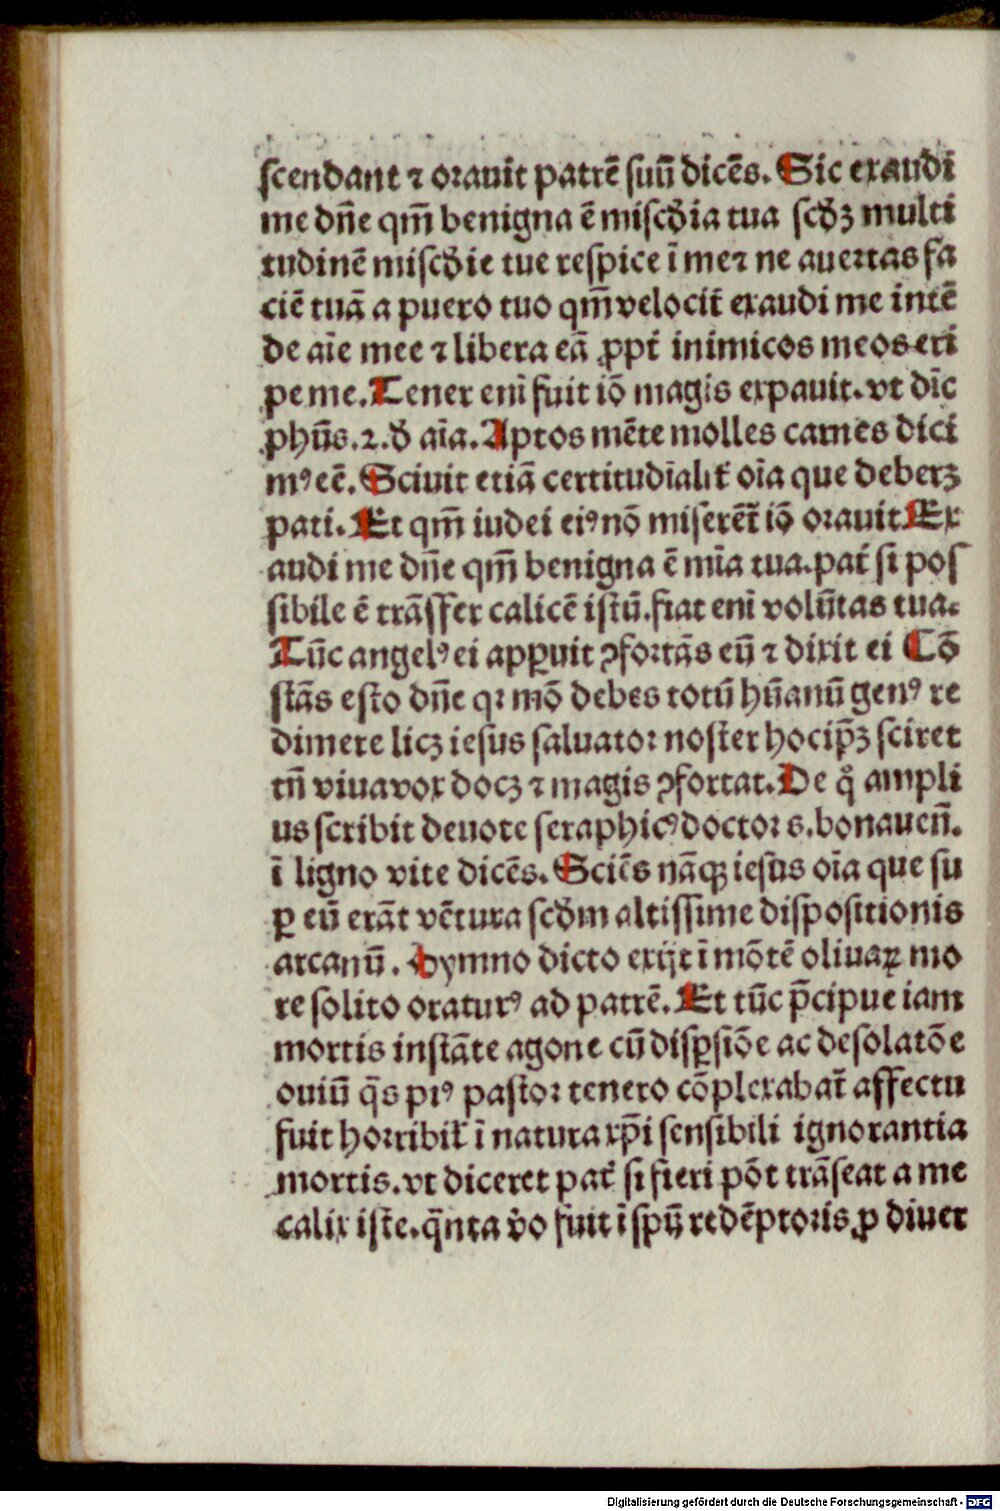 scendant ⁊ orauit patrē suū dicēs. Sic exaudi
me dn̄e qm̄ benigna ē misc̄dia tua scd̄ꝫ multi
tudinē misc̄die tue respice ī me⁊ ne auertas fa
ciē tuā a puero tuo qm̄ velocit̄ exaudi me intē
de aīe mee ⁊ libera eā ꝓpt̄ inimicos meos eri
pe me. Tener enī fuit iō magis expauit. vt dīc
phūs. 2. d̄ aīa. Aptos mēte molles carnes dici
mꝰ eē. Sciuit etiā certitudīalit̄ oīa que deberꝫ
pati. Et qm̄ iudei eiꝰ nō miserēt̄ iō orauit Ex
audi me dn̄e qm̄ benigna ē mīa tua. pat̄ si pos
sibile ē trāsfer calicē istū. fiat enī volūtas tua.
Tūc angelꝰ ei apꝑuit ꝯfortās eū ⁊ dixit ei Cō
stās esto dn̄e qꝛ mō debes totū hūanū genꝰ re
dimere licꝫ iesus saluator noster hocip̄ꝫ sciret
tn̄ viuavox docꝫ ⁊ magis ꝯfortat. De qͦ ampli
us scribit deuote seraphicꝰ doctor s. bonauen̄.
ī ligno vite dicēs. Sciēs nāqꝫ iesus oīa que su
ꝑ eū erāt vētura scd̄m altissime dispositionis
arcanū. Hymno dicto exijt ī mōtē oliuaꝝ mo
re solito oraturꝰ ad patrē. Et tūc p̄cipue iam
mortis instāte agone cū disꝑsiōe ac desolatōe
ouiū q̄s piꝰ pastor tenero cōplexabat̄ affectu
fuit horribil̄ ī natura xp̄i sensibili ignorantia
mortis. vt diceret pat̄ si fieri pōt trāseat a me
calix iste. q̄nta v̄o fuit ī spū redēptoris ꝓ diuer
Digitalisierung gefördert durch die Deutsche Forschungsgemeinschaft - DFG